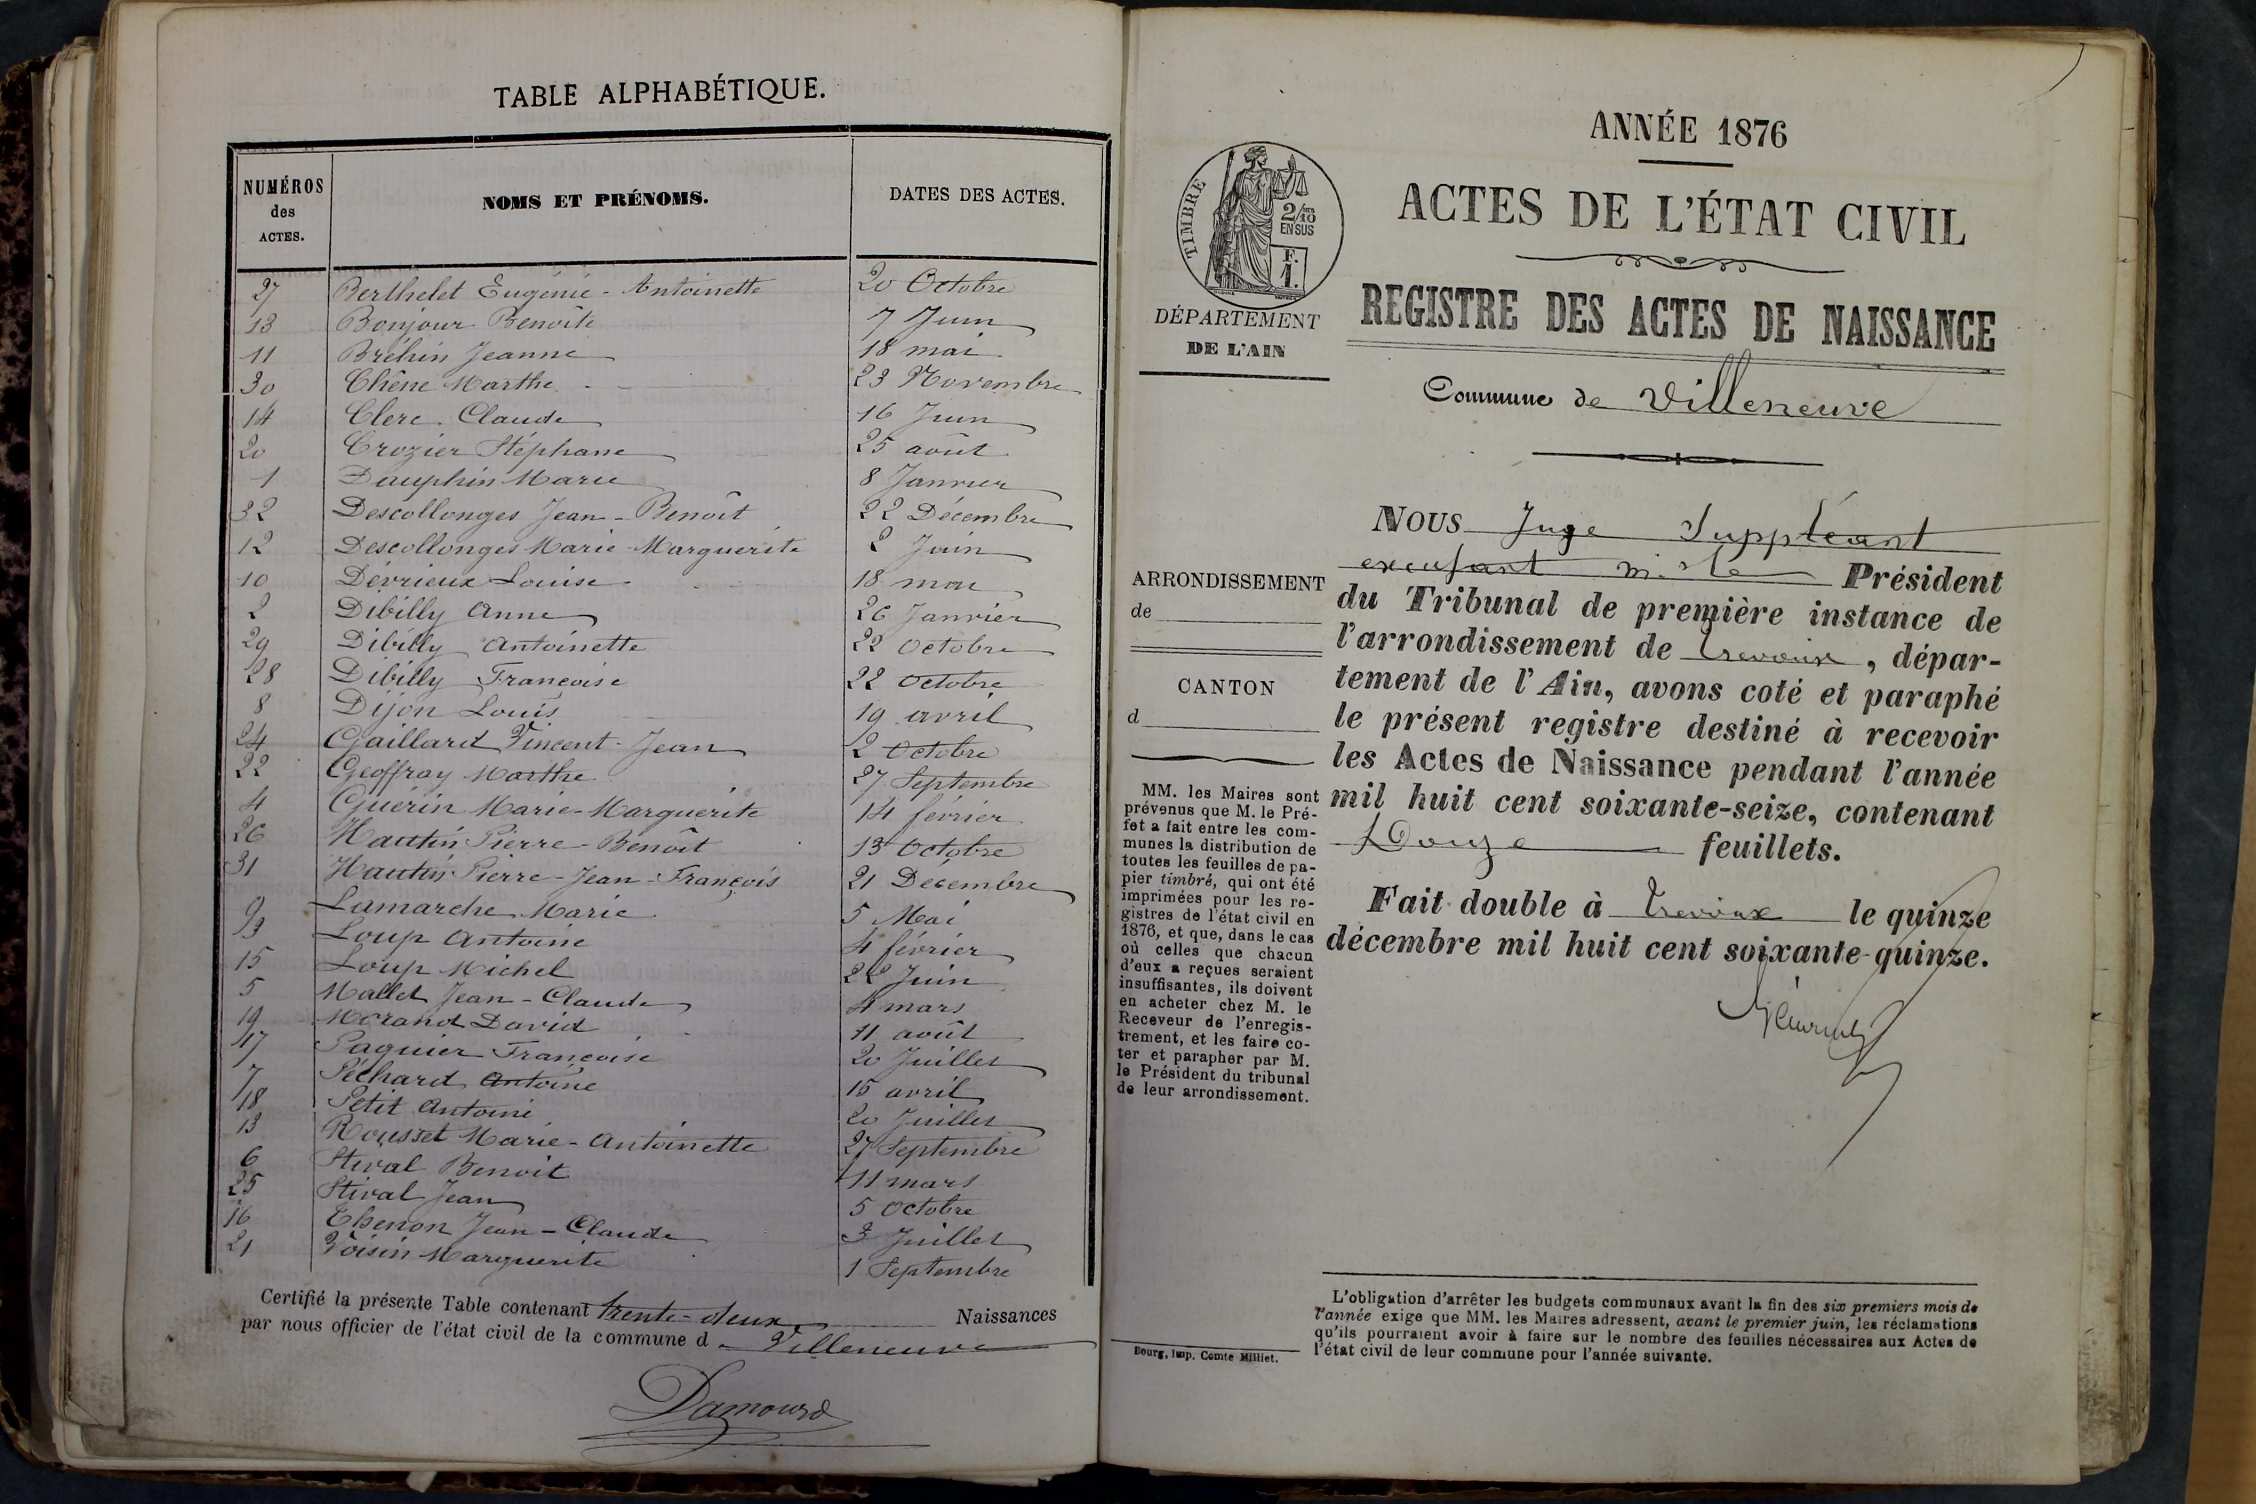 TABLE ALPHABÉTIQUE.
NUMÉROS des ACTES. NOMS ET PRÉNOMS. DATES DES ACTES.
27 Berthelet Eugénie - Antoinette 20 Octobre
13 Bonjour Benoîte 7 Juin
11 Bréhin Jeanne 18 mai
30 Chêne Marthe 23 Novembre
14 Clerc Claude 16 Juin
20 Crozier Stéphane 25 août
1 Dauphin Marie 8 Janvier
32 Descollonges Jean - Benoît 22 Décembre
12 Descollonges Marie - Marguerite 2 Juin
10 Dévrieux Louise 18 mai
2 Dibilly Anne 26 Janvier
29 Dibilly Antoinette 22 Octobre
28 Dibilly Françoise 22 Octobre
8 Dijon Louis 19 avril
24 Gaillard Vincent - Jean 2 Octobre
22 Geoffray Marthe 27 Septembre
4 Guérin Marie - Marguerite 14 février
26 Hautin Pierre - Benoît 13 Octobre
31 Hautin Pierre - Jean - François 21 Décembre
9 Lamarche Marie 5 Mai
3 Loup Antoine 4 février
15 Loup Michel 22 Juin
5 Mallet Jean - Claude 4 mars
19 Morand David 11 août
17 Paquier Françoise 20 Juillet
7 Péchard Antoine 15 avril
18 Petit Antoine 20 Juillet
13 Rousset Marie - Antoinette 27 Septembre
6 Stival Benoit 11 mars
25 Stival Jean 5 Octobre
16 Thenon Jean - Claude 3 Juillet
21 Voisin Marguerite 1 Septembre
Certifié la présente Table contenant trente-deux Naissances
par nous officier de l'état civil de la commune d Villeneuve
Damourd
ANNÉE 1876
ACTES DE L'ÉTAT CIVIL
REGISTRE DES ACTES DE NAISSANCE
Commune de Villeneuve
TIMBRE
2/10
EN SUS
F.
1.
DÉPARTEMENT
DE L'AIN
ARRONDISSEMENT
de
CANTON
d
MM. les Maires sont
prévenus que M. le Pré-
fet a fait entre les com-
munes la distribution de
toutes les feuilles de pa-
pier timbré, qui ont été
imprimées pour les re-
gistres de l'état civil en
1876, et que, dans le cas
où celles que chacun
d'eux a reçues seraient
insuffisantes, ils doivent
en acheter chez M. le
Receveur de l'enregis-
trement, et les faire co-
ter et parapher par M.
le Président du tribunal
de leur arrondissement.
Bourg, Imp. Comte Milliet.
NOUS Juge Suppléant
M. le Président
du Tribunal de première instance de
l'arrondissement de Trevoux, dépar-
tement de l'Ain, avons coté et paraphé
le présent registre destiné à recevoir
les Actes de Naissance pendant l'année
mil huit cent soixante-seize, contenant
Douze feuillets.
Fait double à Trevoux le quinze
décembre mil huit cent soixante-quinze.
L'obligation d'arrêter les budgets communaux avant la fin des six premiers mois de
l'année exige que MM. les Maires adressent, avant le premier juin, les réclamations
qu'ils pourraient avoir à faire sur le nombre des feuilles nécessaires aux Actes de
l'état civil de leur commune pour l'année suivante.